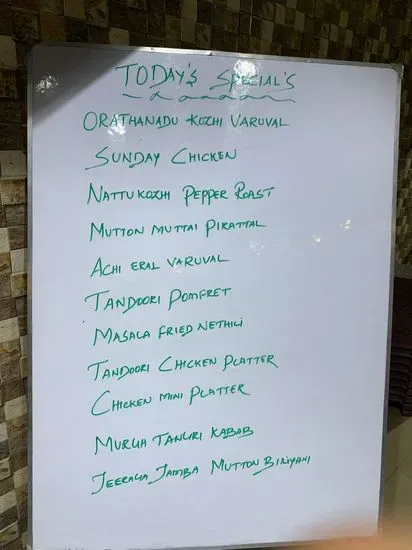 TODAY'S SPECIAL'S
ORATHANADU KOZHI VARUVAL
SUNDAY CHICKEN
NATTUKOZHI PEPPER ROAST
MUTTON MUTTAI PIRATTAL
ACHI ERAL VARUVAL
TANDOORI POMFRET
MASALA FRIED NETHILI
TANDOORI CHICKEN PLATTER
CHICKEN MINI PLATTER
MURGH TANGRI KABAB
JEERAGA JAMBA MUTTON BIRIYANI